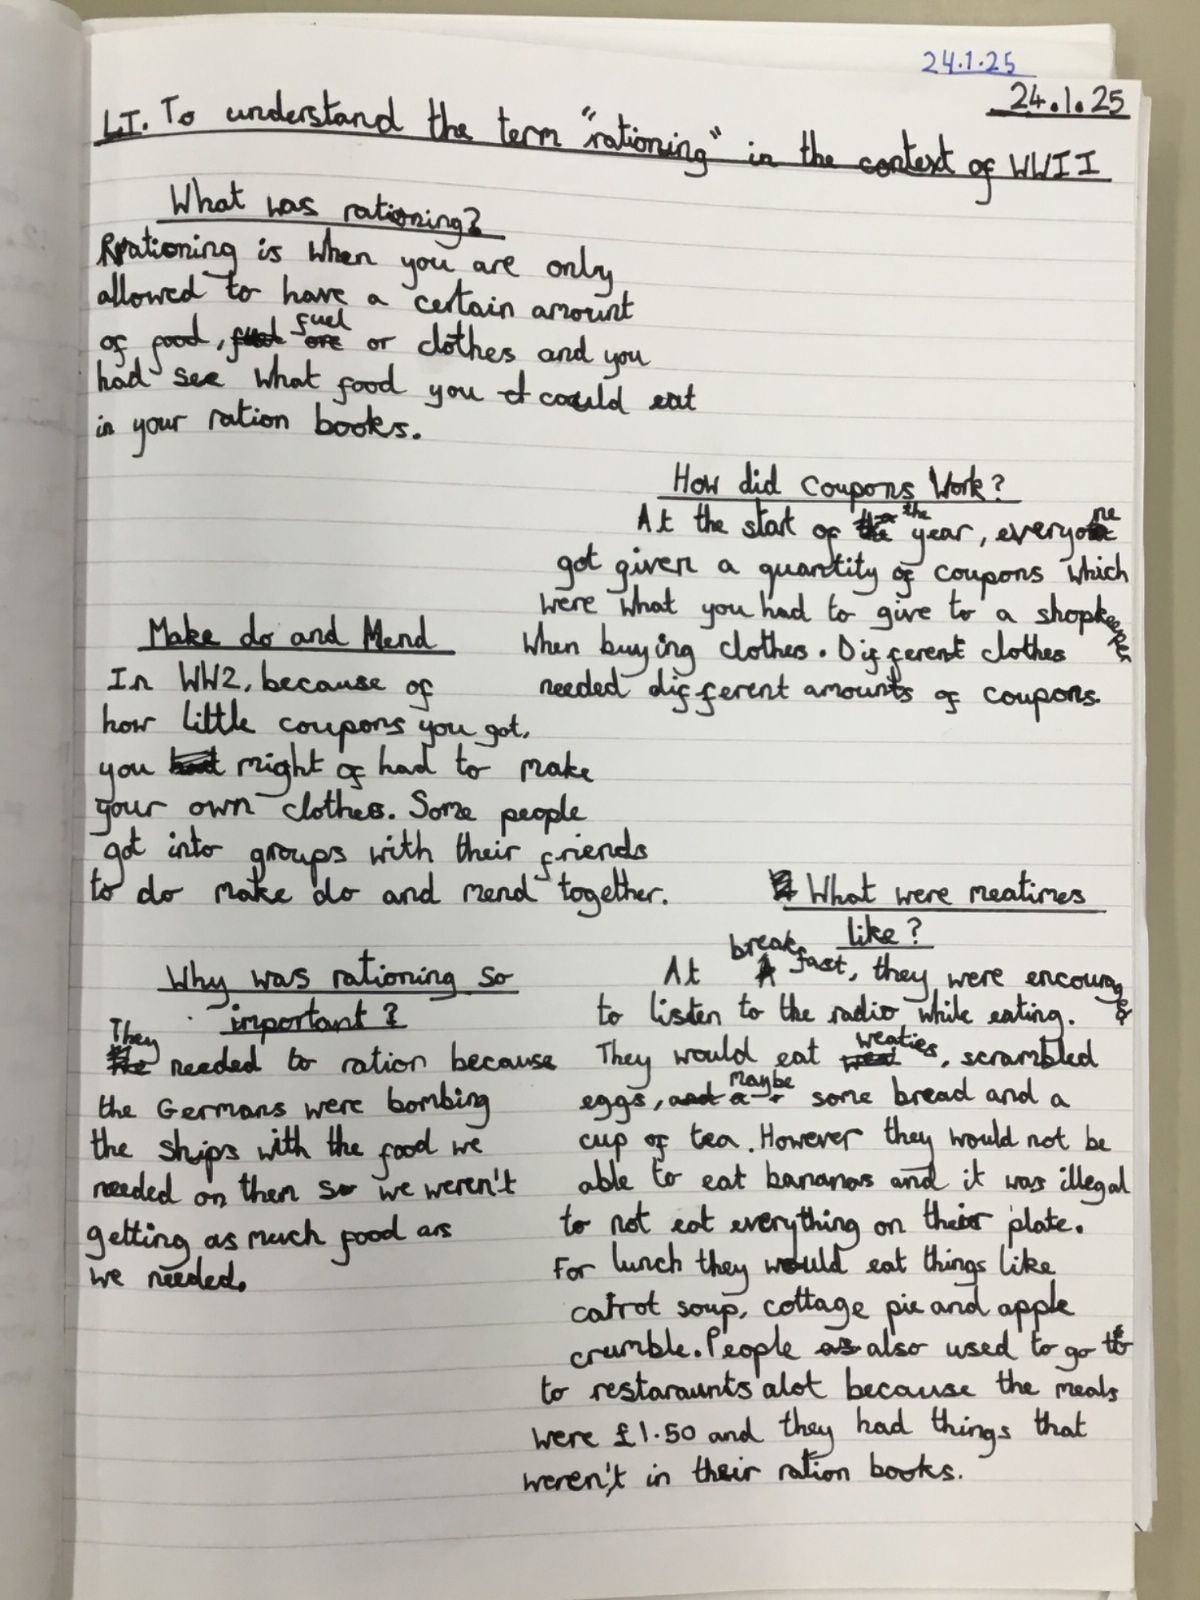 24.1.25
24.1.25
LI. To understand the term "rationing" in the context of WWII
What was rationing?
Rationing is when you are only
allowed to have a certain amount
of food, fuel or clothes and you
had see what food you could eat
in your ration books.
How did coupons work?
At the start of the year, everyone
got given a quantity of coupons which
were what you had to give to a shopkeeper
when buying clothes. Different clothes
needed different amounts of coupons.
Make do and Mend
In WW2, because of
how little coupons you got,
you might of had to make
your own clothes. Some people
got into groups with their friends
to do make do and mend together.
What were meatimes
like?
At breakfast, they were encouraged
to listen to the radio while eating.
They would eat weaties, scrambled
eggs, maybe some bread and a
cup of tea. However they would not be
able to eat bananas and it was illegal
to not eat everything on their plate.
For lunch they would eat things like
carrot soup, cottage pie and apple
crumble. People also used to go
to restaraunts alot because the meals
were £1.50 and they had things that
weren't in their ration books.
Why was rationing so
important?
They needed to ration because
the Germans were bombing
the ships with the food we
needed on them so we weren't
getting as much food as
we needed.